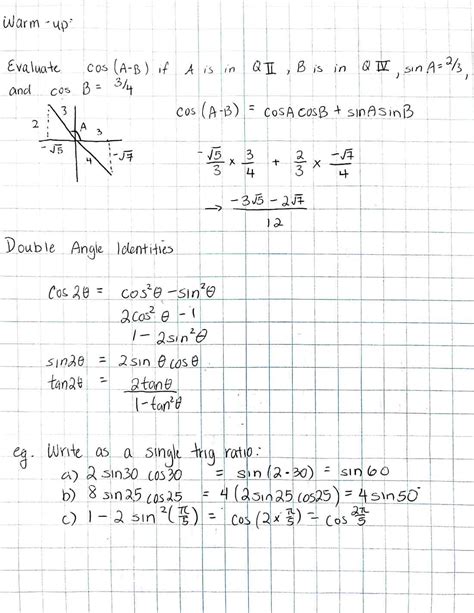 Warm-up:
Evaluate cos (A-B) if A is in Q II, B is in Q IV, sin A = 2/3,
and cos B = 3/4
cos (A-B) = cosA cosB + sinA sinB
3
2 A 3
-√5 4 -√7
-√5/3 × 3/4 + 2/3 × -√7/4
→ (-3√5 - 2√7)/12
Double Angle Identities
cos 2θ = cos²θ - sin²θ
2cos²θ - 1
1 - 2sin²θ
sin2θ = 2 sin θ cosθ
tan2θ = 2tanθ/(1-tan²θ)
eg. Write as a single trig ratio:
a) 2 sin30 cos30 = sin (2·30) = sin 60
b) 8 sin25 cos25 = 4 (2sin25 cos25) = 4 sin 50°
c) 1 - 2 sin²(π/5) = cos (2×π/5) = cos 2π/5